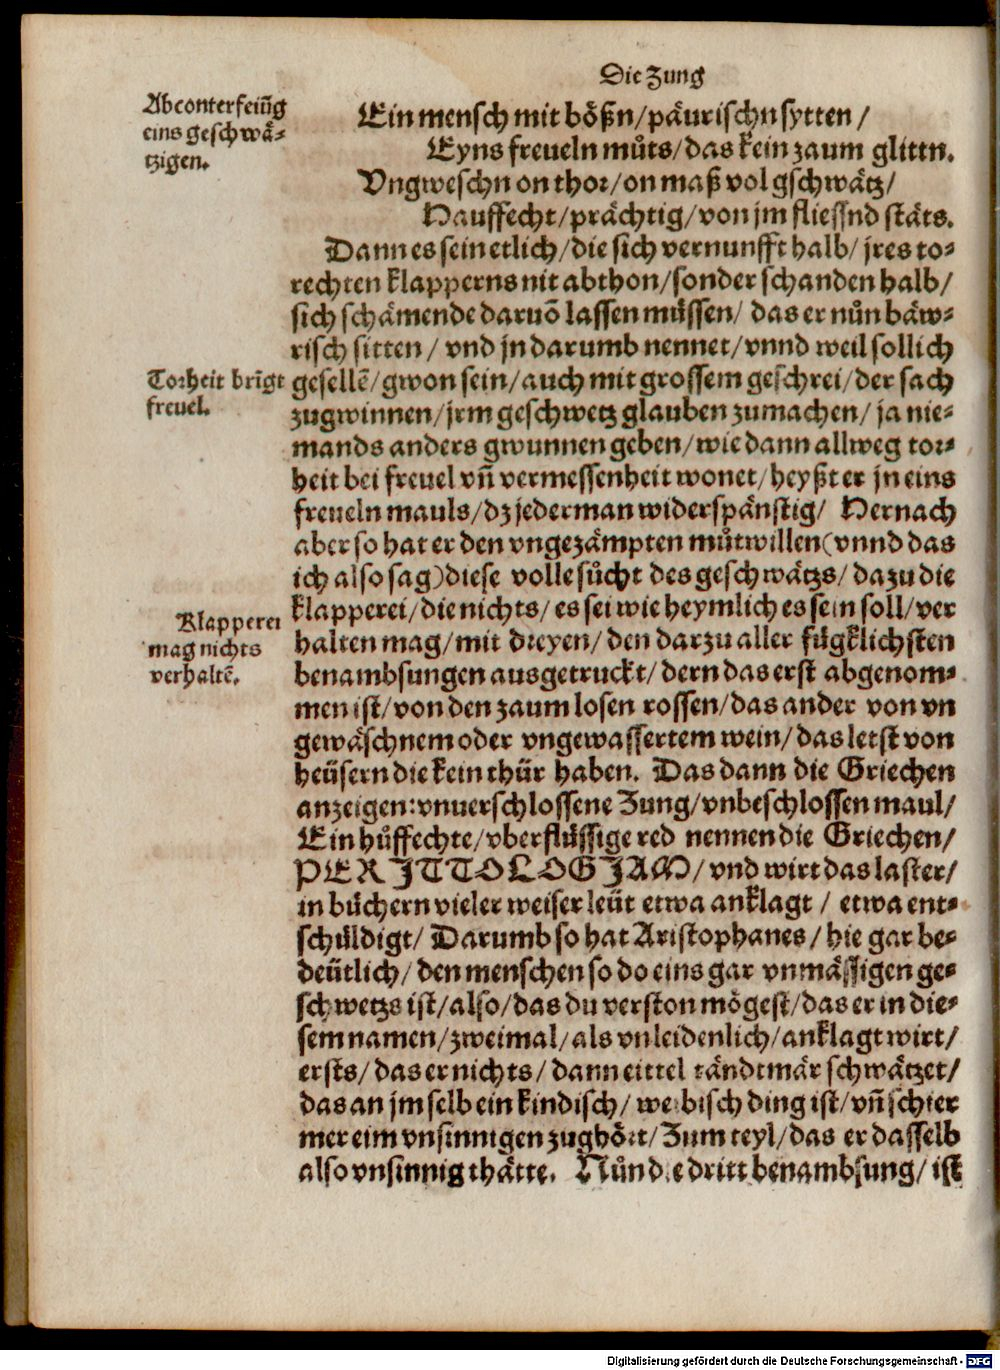 Die Zung
Abconterfeiũg
eins geschwä-
tzigen.
Ein mensch mit bößn/päurischn sytten/
Eyns freueln můts/das kein zaum glittn.
Vngweschn on thor/on maß vol gschwätz/
Hauffecht/prächtig/von jm fliessnd stäts.
Dann es sein etlich/die sich vernunfft halb/jres to-
rechten klapperns nit abthon/sonder schanden halb/
sich schämende daruõ lassen müssen/ das er nůn bäw-
risch sitten/ vnd jn darumb nennet/vnnd weil sollich
Torheit brĩgt
freuel.
gesellẽ/gwon sein/auch mit grossem geschrei/der sach
zugwinnen/jrm geschwetz glauben zumachen/ ja nie-
mands anders gwunnen geben/wie dann allweg tor-
heit bei freuel vñ vermessenheit wonet/heyßt er jn eins
freueln mauls/dz jederman widerspänstig/ Hernach
aber so hat er den vngezämpten můtwillen(vnnd das
ich also sag)diese volle sůcht des geschwätzs/ dazu die
Klapperei
mag nichts
verhaltẽ.
klapperei/die nichts/ es sei wie heymlich es sein soll/ver
halten mag/mit dreyen/den darzu aller fügklichsten
benambsungen ausgetruckt/dern das erst abgenom-
men ist/von den zaum losen rossen/das ander von vn
gewäschnem oder vngewassertem wein/das letst von
heüsern die kein thür haben. Das dann die Griechen
anzeigen:vnuerschlossene Zung/vnbeschlossen maul/
Ein hüffechte/vberflüssige red nennen die Griechen/
PERJTTOLOGJAM/vnd wirt das laster/
in büchern vieler weiser leüt etwa anklagt/ etwa ent-
schüldigt/ Darumb so hat Aristophanes/hie gar be-
deütlich/den menschen so do eins gar vnmässigen ge-
schwetzs ist/also/das du verston mögest/das er in die-
sem namen/zweimal/als vnleidenlich/anklagt wirt/
ersts/das er nichts/ dann eittel tändtmär schwätzet/
das an jm selb ein kindisch/ weibisch ding ist/vñ schier
mer eim vnsinnigen zughört/Zum teyl/das er dasselb
also vnsinnig thätte. Nůn die dritt benambsung/ist
Digitalisierung gefördert durch die Deutsche Forschungsgemeinschaft - DFG